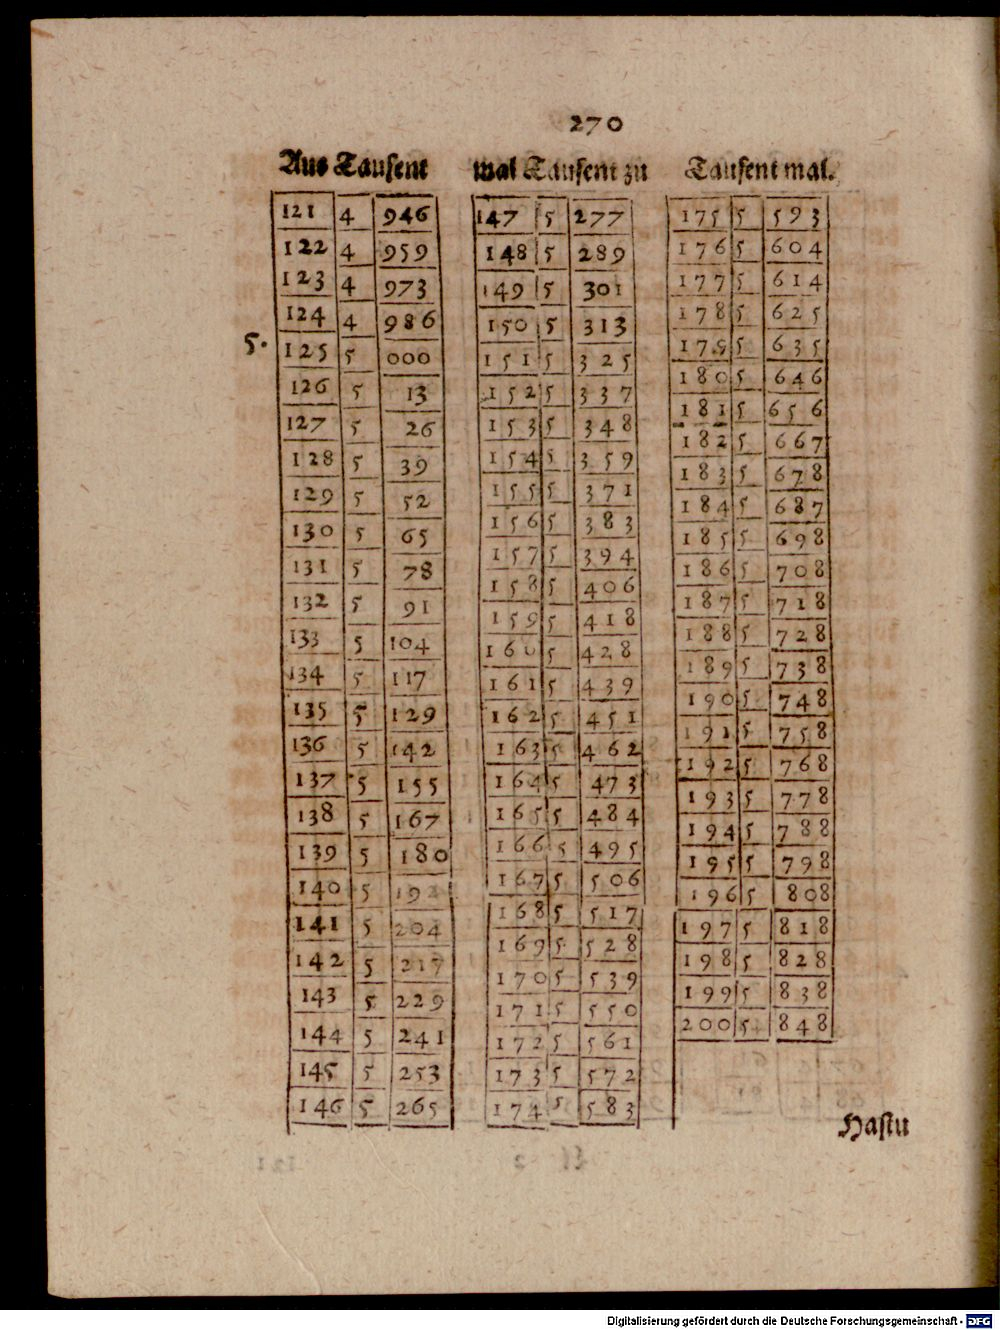 270
Aus Tausent mal Tausent zu Tausent mal.
121 4 946
122 4 959
123 4 973
124 4 986
5.
125 5 000
126 5 13
127 5 26
128 5 39
129 5 52
130 5 65
131 5 78
132 5 91
133 5 104
134 5 117
135 5 129
136 5 142
137 5 155
138 5 167
139 5 180
140 5 192
141 5 204
142 5 217
143 5 229
144 5 241
145 5 253
146 5 265
147 5 277
148 5 289
149 5 301
150 5 313
151 5 325
152 5 337
153 5 348
154 5 359
155 5 371
156 5 383
157 5 394
158 5 406
159 5 418
160 5 428
161 5 439
162 5 451
163 5 462
164 5 473
165 5 484
166 5 495
167 5 506
168 5 517
169 5 528
170 5 539
171 5 550
172 5 561
173 5 572
174 5 583
175 5 593
176 5 604
177 5 614
178 5 625
179 5 635
180 5 646
181 5 656
182 5 667
183 5 678
184 5 687
185 5 698
186 5 708
187 5 718
188 5 728
189 5 738
190 5 748
191 5 758
192 5 768
193 5 778
194 5 788
195 5 798
196 5 808
197 5 818
198 5 828
199 5 838
200 5 848
Hastu
Digitalisierung gefördert durch die Deutsche Forschungsgemeinschaft - DFG